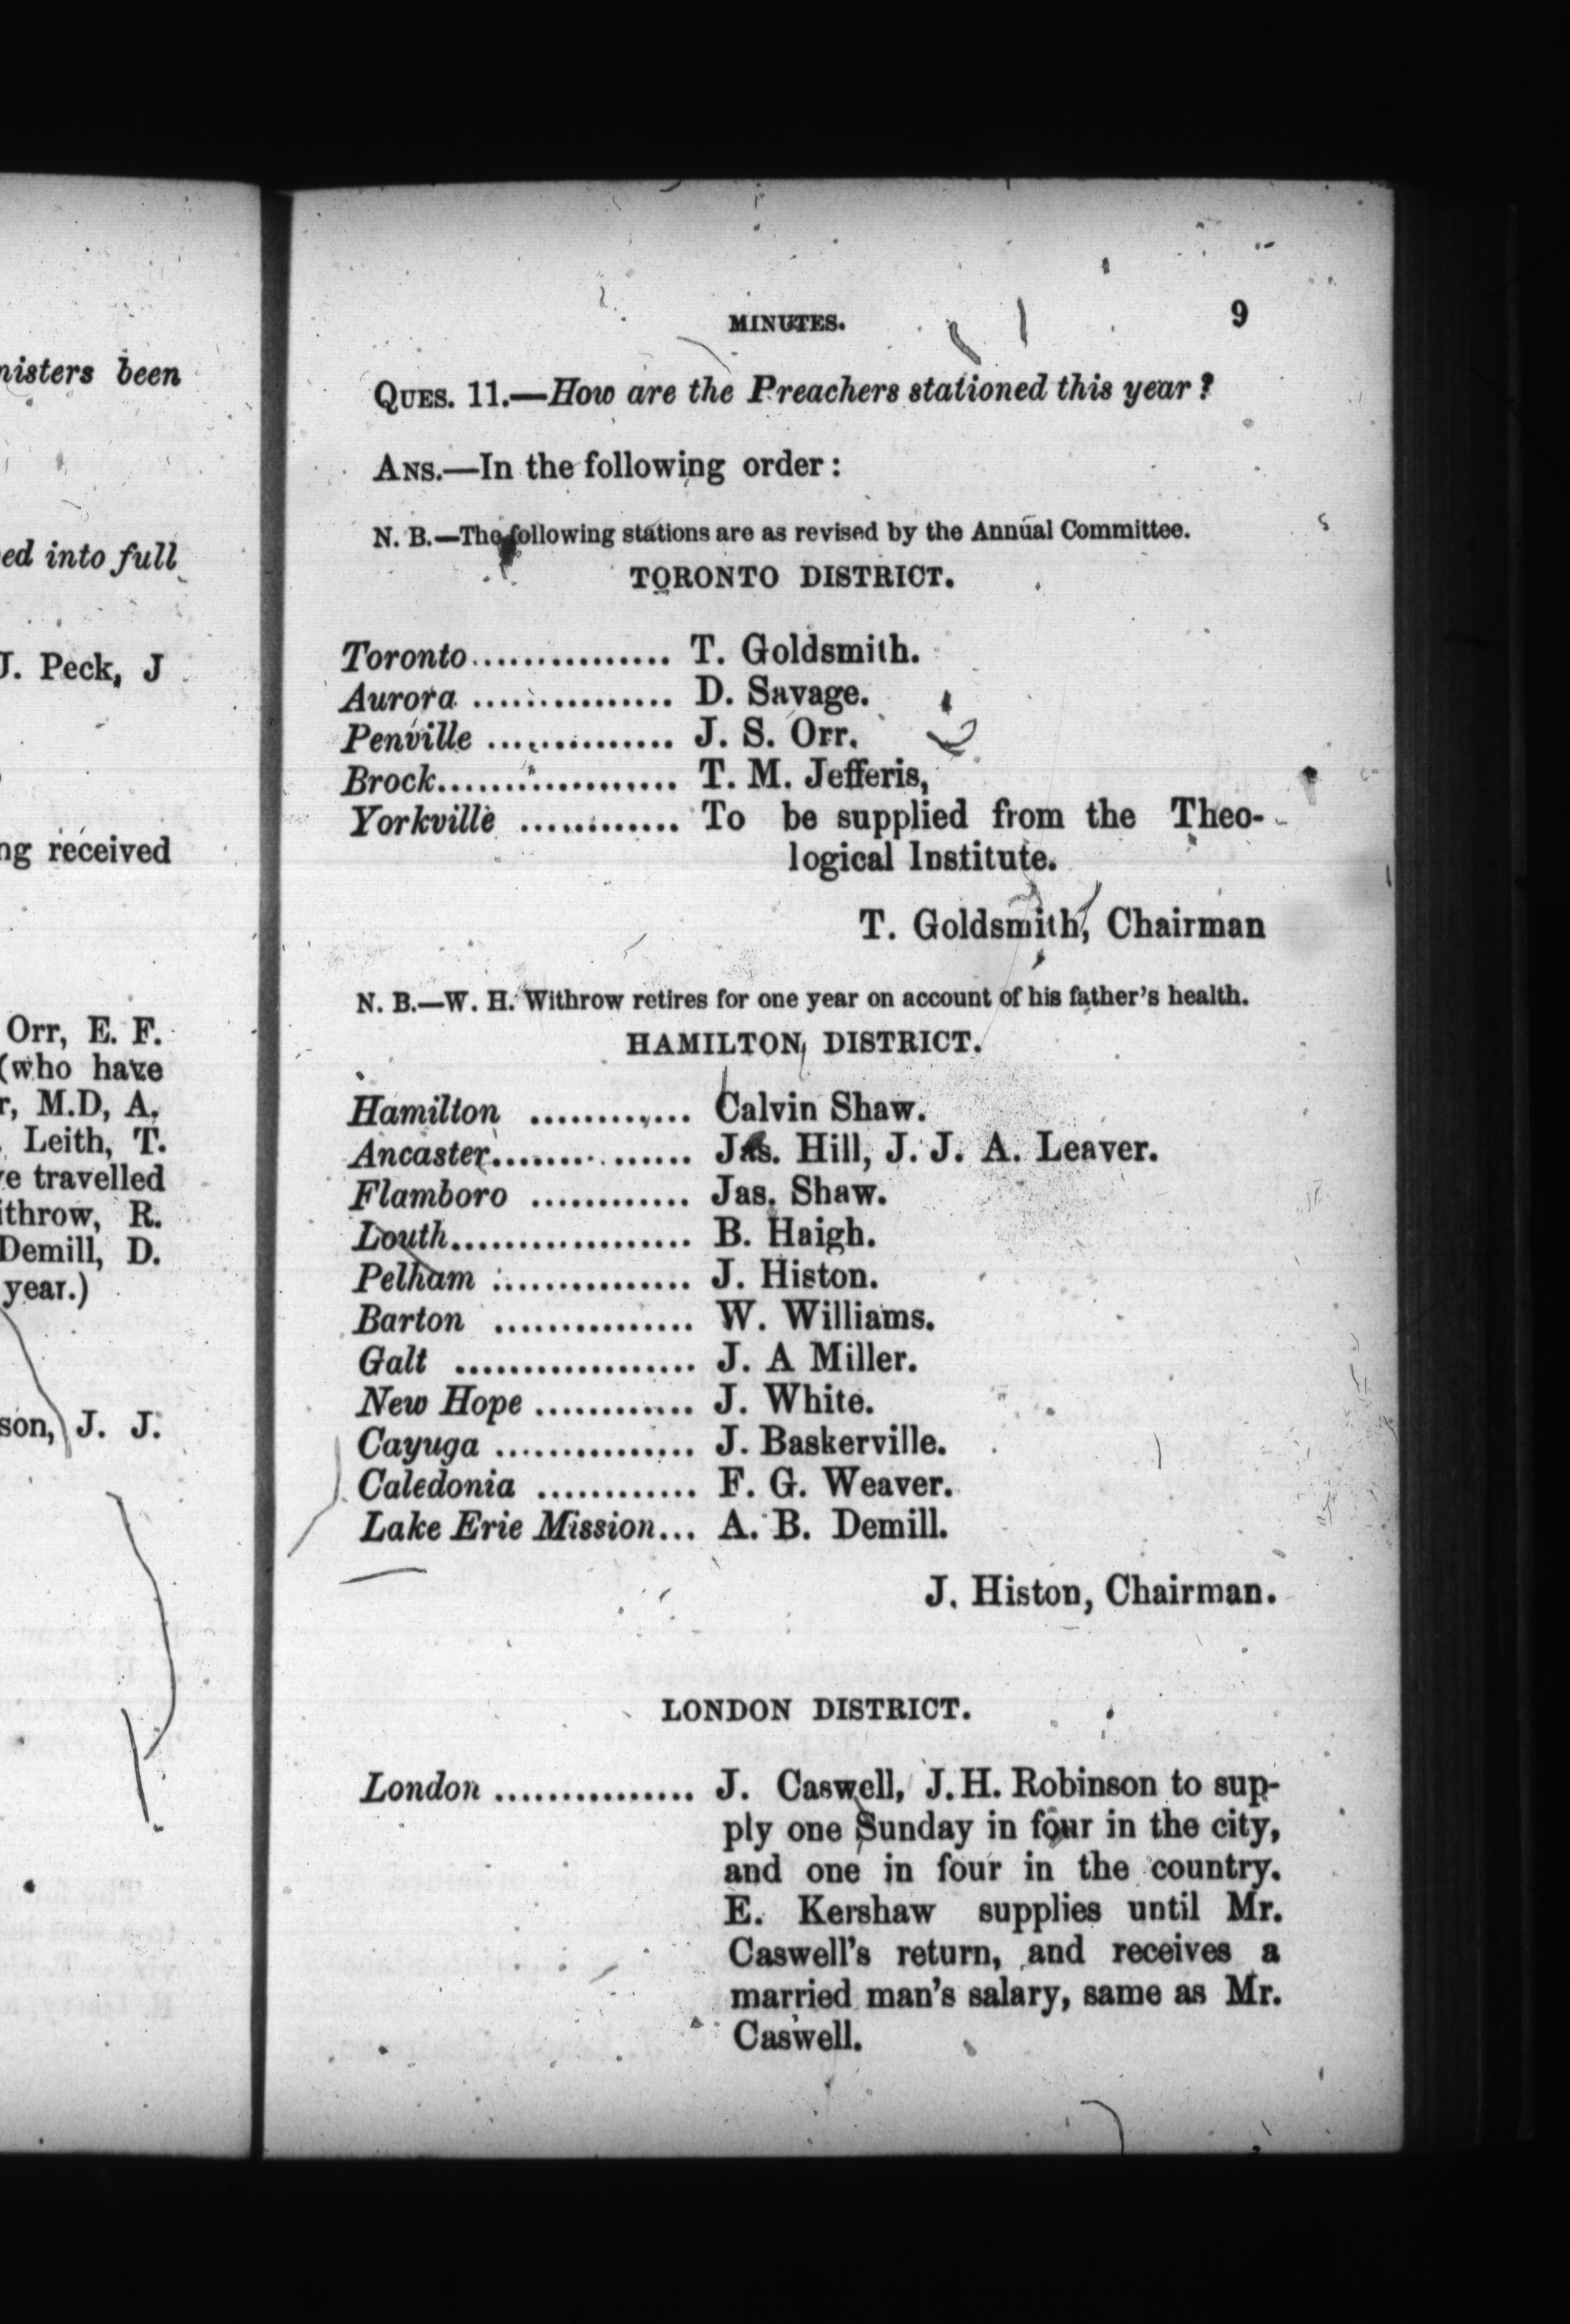 nisters been
ed into full
J. Peck, J
ng received
Orr, E. F.
(who have
r, M.D, A.
Leith, T.
ve travelled
ithrow, R.
Demill, D.
year.)
son, J. J.
MINUTES. 9
QUES. 11.—How are the Preachers stationed this year?
ANS.—In the following order:
N. B.—The following stations are as revised by the Annual Committee.
TORONTO DISTRICT.
Toronto............... T. Goldsmith.
Aurora ............... D. Savage.
Penville .............. J. S. Orr.
Brock.................. T. M. Jefferis,
Yorkville ............ To be supplied from the Theo-
logical Institute.
T. Goldsmith, Chairman
N. B.—W. H. Withrow retires for one year on account of his father's health.
HAMILTON DISTRICT.
Hamilton ............ Calvin Shaw.
Ancaster............... Jas. Hill, J. J. A. Leaver.
Flamboro ............ Jas. Shaw.
Louth.................. B. Haigh.
Pelham ............... J. Histon.
Barton ............... W. Williams.
Galt .................. J. A Miller.
New Hope ............ J. White.
Cayuga ............... J. Baskerville.
Caledonia ............ F. G. Weaver.
Lake Erie Mission... A. B. Demill.
J. Histon, Chairman.
LONDON DISTRICT.
London ............... J. Caswell, J. H. Robinson to sup-
ply one Sunday in four in the city,
and one in four in the country.
E. Kershaw supplies until Mr.
Caswell's return, and receives a
married man's salary, same as Mr.
Caswell.